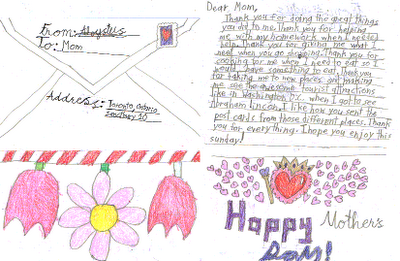 From:
To: Mom
Address: Toronto, Ontario
Dear Mom,
Thank you for doing the great things
you do to me. Thank you for helping
me with my homework when I needed
help. Thank you for giving me what I
need when you go shopping. Thank you for
cooking for me when I need to eat so I
would have something to eat. Thank you
for taking me to new places and making
me see the awesome tourist attractions
like in Washington D.C. when I got to see
Abraham Lincon. I like how you sent the
post cards from those different places. Thank
you for everything. I hope you enjoy this
sunday!
Happy Mother's
Day!